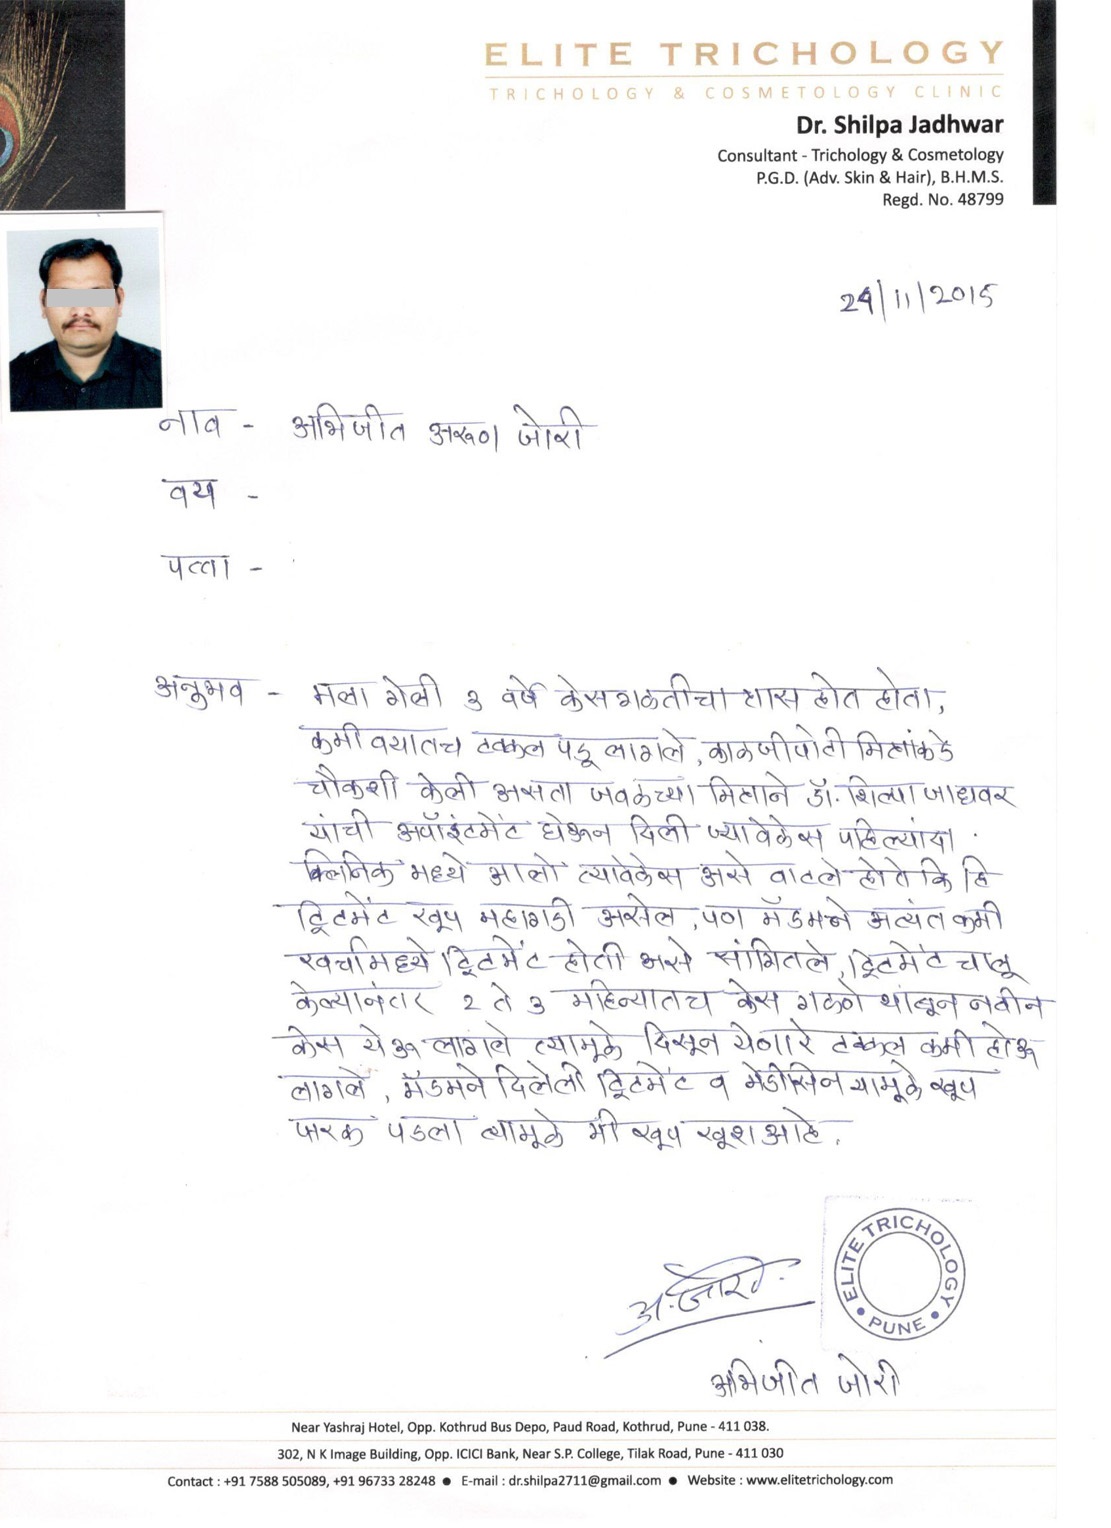 ELITE TRICHOLOGY
TRICHOLOGY & COSMETOLOGY CLINIC
Dr. Shilpa Jadhwar
Consultant - Trichology & Cosmetology
P.G.D. (Adv. Skin & Hair), B.H.M.S.
Regd. No. 48799
24/11/2015
नाव - अभिजीत अरूण जोरी
वय -
पत्ता -
अनुभव - मला गेली ३ वर्षे केसगळतीचा त्रास होत होता,
कमी वयातच टक्कल पडू लागले, काळजीपोटी मित्रांकडे
चौकशी केली असता जवळच्या मित्राने डॉ. शिल्पा जाधवर
यांची अपॉइंटमेंट घेऊन दिली ज्यावेळेस पहिल्यांदा
क्लिनिक मध्ये आलो त्यावेळेस असे वाटले होते कि हि
ट्रिटमेंट खूप महागडी असेल, पण मॅडमने अत्यंत कमी
खर्चामध्ये ट्रिटमेंट होती असे सांगितले, ट्रिटमेंट चालू
केल्यानंतर २ ते ३ महिन्यातच केस गळणे थांबून नवीन
केस येऊ लागले त्यामूळे दिसून येणारे टक्कल कमी होऊ
लागले, मॅडमने दिलेली ट्रिटमेंट व मेडीसिन यामूळे खूप
फरक पडला त्यामूळे मी खूप खूश आहे.
अ. जोरी
ELITE TRICHOLOGY
• PUNE •
अभिजीत जोरी
Near Yashraj Hotel, Opp. Kothrud Bus Depo, Paud Road, Kothrud, Pune - 411 038.
302, N K Image Building, Opp. ICICI Bank, Near S.P. College, Tilak Road, Pune - 411 030
Contact : +91 7588 505089, +91 96733 28248 ● E-mail : dr.shilpa2711@gmail.com ● Website : www.elitetrichology.com